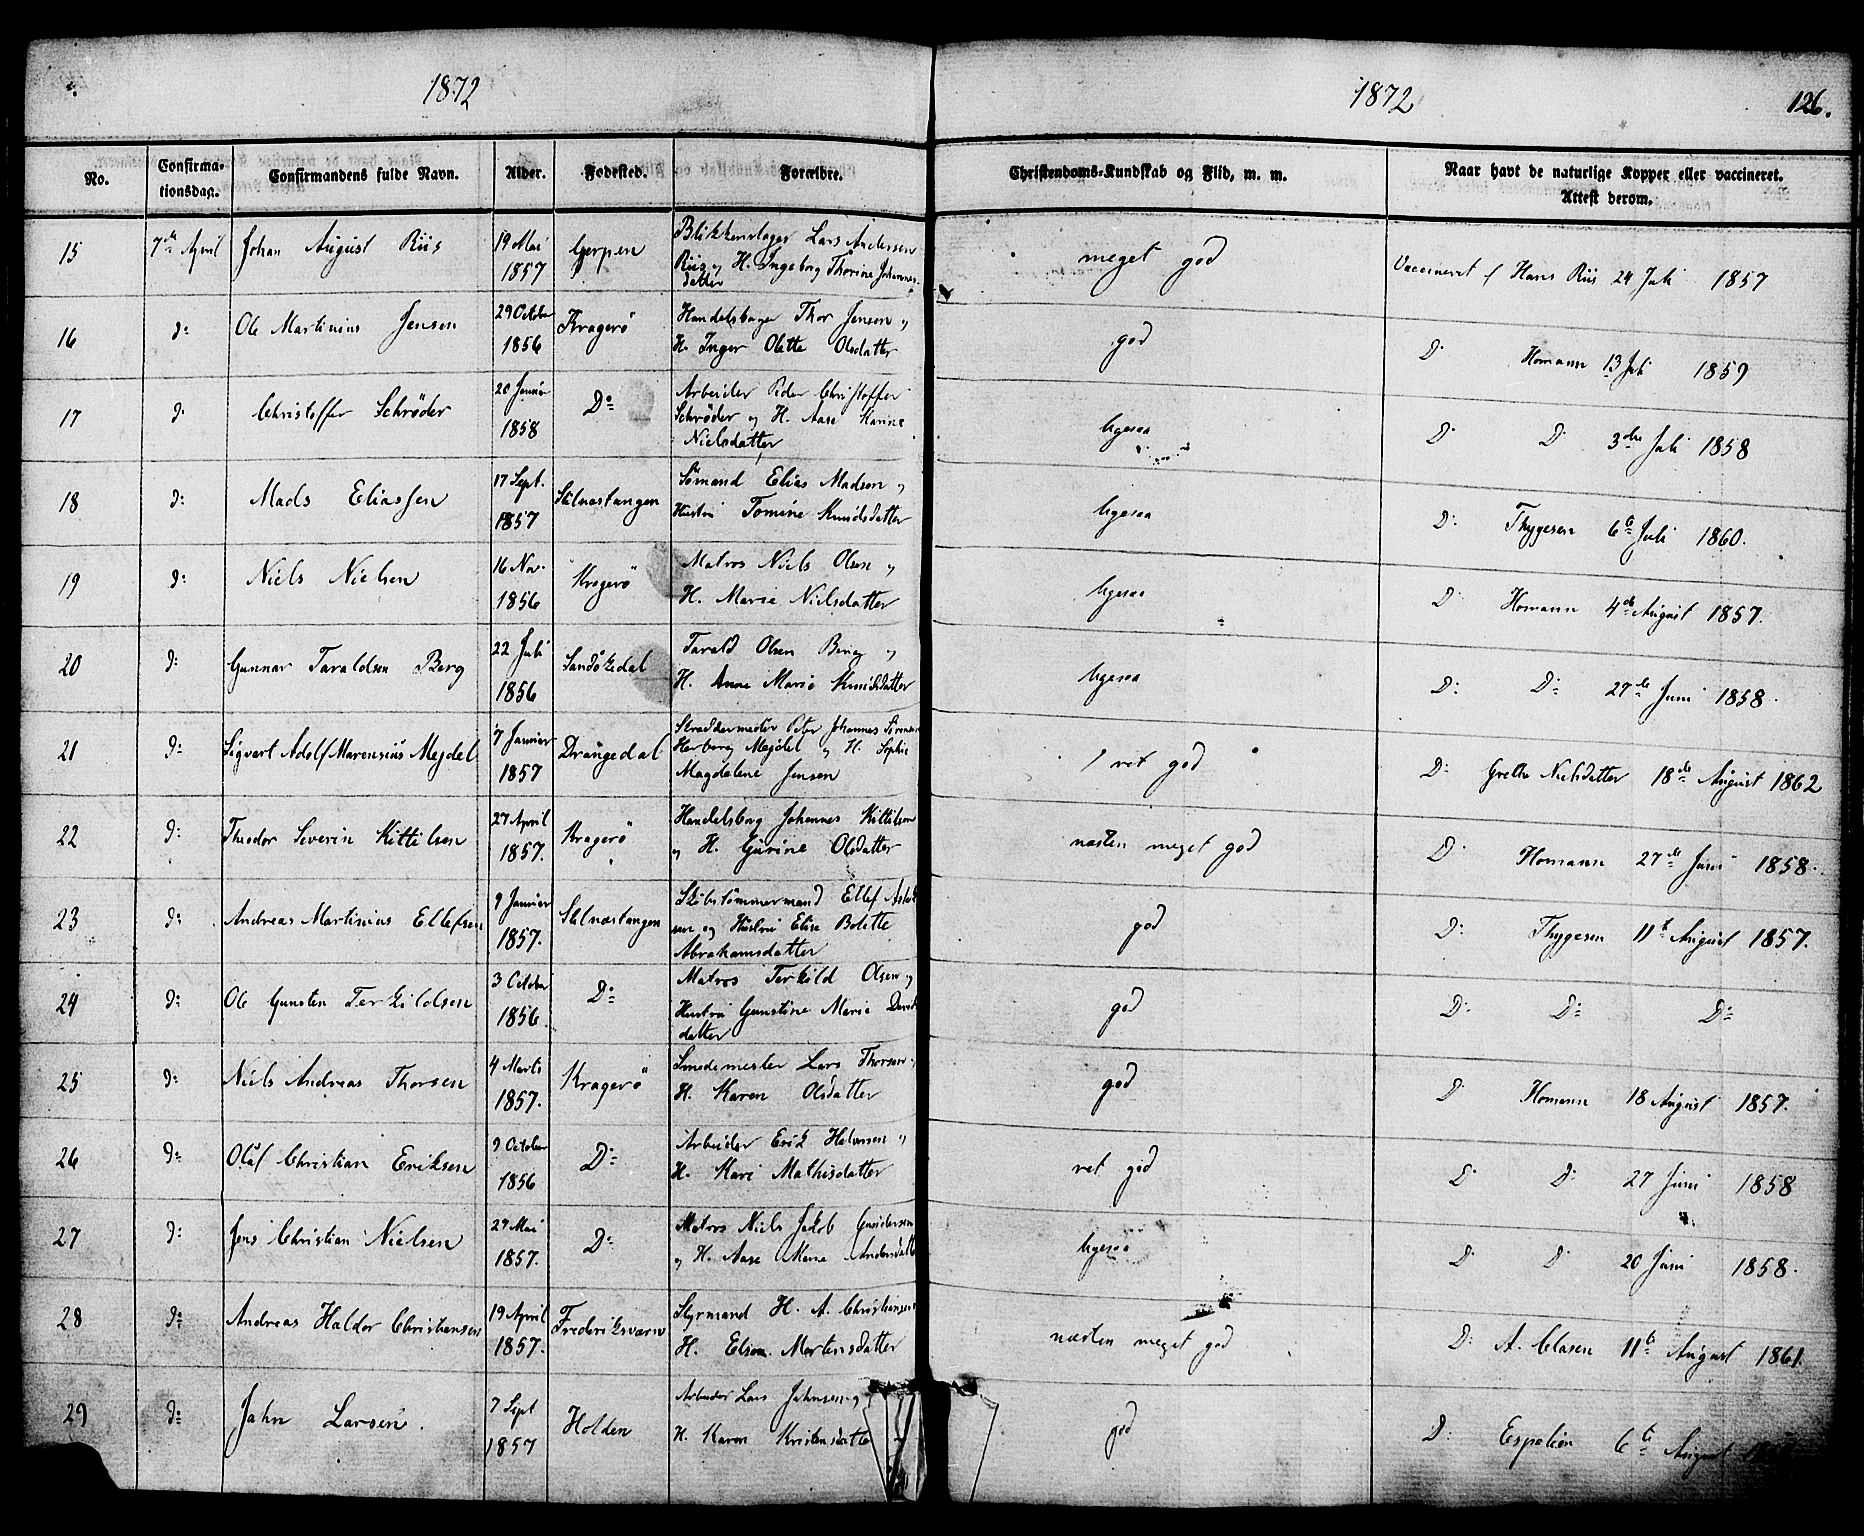 1872
1872
126.
No.
Confirma-
tionsdag.
Confirmandens fulde Navn.
Alder.
Fødested.
Forældre.
Christendoms-Kundskab og Flid, m. m.
Naar havt de naturlige Kopper eller vaccineret.
Attest derom.
15 7de April Johan August Riis 19 Mai 1857 Gjerpen
Blikkenslager Lars Andersen
Riis og H. Ingeborg Thorine Johannes-
datter
meget god
Vaccineret af Hans Riis 24 Juli 1857
16 d: Ole Martinius Jensen 29 Octobr 1856 Kragerø
Handelsborger Thor Jensen og
H. Inger Olette Olsdatter
god
D. Homann 13 Juli 1859
17 d: Christoffer Schrøder 20 Januar 1858 Do
Arbeider Peder Christoffer
Schrøder og H. Aase Karine
Nielsdatter
ligesaa
D. D. 3die Juli 1858
18 d: Mads Eliassen 17 Sept. 1857 Stilnæstangen
Sømand Elias Madsen og
Hustru Tomine Knudsdatter
ligesaa
D: Thygesen 6te Juli 1860.
19 d: Niels Nielsen 16 Nov. 1856 Kragerø
Matros Niels Olsen og
H. Marie Nielsdatter
ligesaa
D. Homann 4de August 1857.
20 d: Gunnar Taraldsen Berg 22 Juli 1856 Sandøkedal
Tarald Olsen Berg og
H. Anne Marie Knudsdatter
ligesaa
D: D: 27de Juni 1858.
21 d: Sigvart Adolf Marensius Mejdel 7 Januar 1857 Drangedal
Skræddermester Peter Johannes
Herborg Mejdel og H. Sophie
Magdalene Jensen
ret god
D: Grethe Nielsdatter 18de August 1862
22 d: Theodor Severin Kittilsen 27 April 1857. Kragerø
Handelsborg Johannes Kittilsen
og H. Gurine Olsdatter
næsten meget god
D. Homann 27de Juni 1858.
23 d: Andreas Martinius Ellefsen 9 Januar 1857. Stilnæstangen
Skibstømmermand Ellef
sen og Hustru Elise Bolette
Abrahamsdatter
god
D: Thygesen 11te August 1857.
24 d: Ole Gunsten Terkildsen 3 October 1856. Do
Matros Terkild Olsen og
Hustru Gunstine Marie David
datter
god
D. D: D:
25 d: Niels Andreas Thorsen 4 Marts 1857. Kragerø
Smedemester Lars Thorsen og
H. Karen Olsdatter
god
D. Homann 18 August 1857.
26 d: Oluf Christian Eriksen 9 October 1856 Do
Arbeider Erik Halvorsen og
H. Kari Mathisdatter
ret god
D. D: 27 Juni 1858
27 d: Jens Christian Nielsen 29 Mai 1857. Do
Matros Niels Jakob Gundersen
og H. Aase Marie Andersdatter
ligesaa
D. D. 20 Juni 1858.
28 do Andreas Haldor Christiansen 19 April 1857. Frederiksværn
Styrmand H. A. Christiansen
H. Elson. Mortensdatter
næsten meget god
D: A. Clasen 11te August 1861.
29 do Jahn Larsen. 7 Sept 1857 Holden
Arbeider Lars Jahnsen og
H. Karen Kristensdatter
god
D: Espelien 6te August